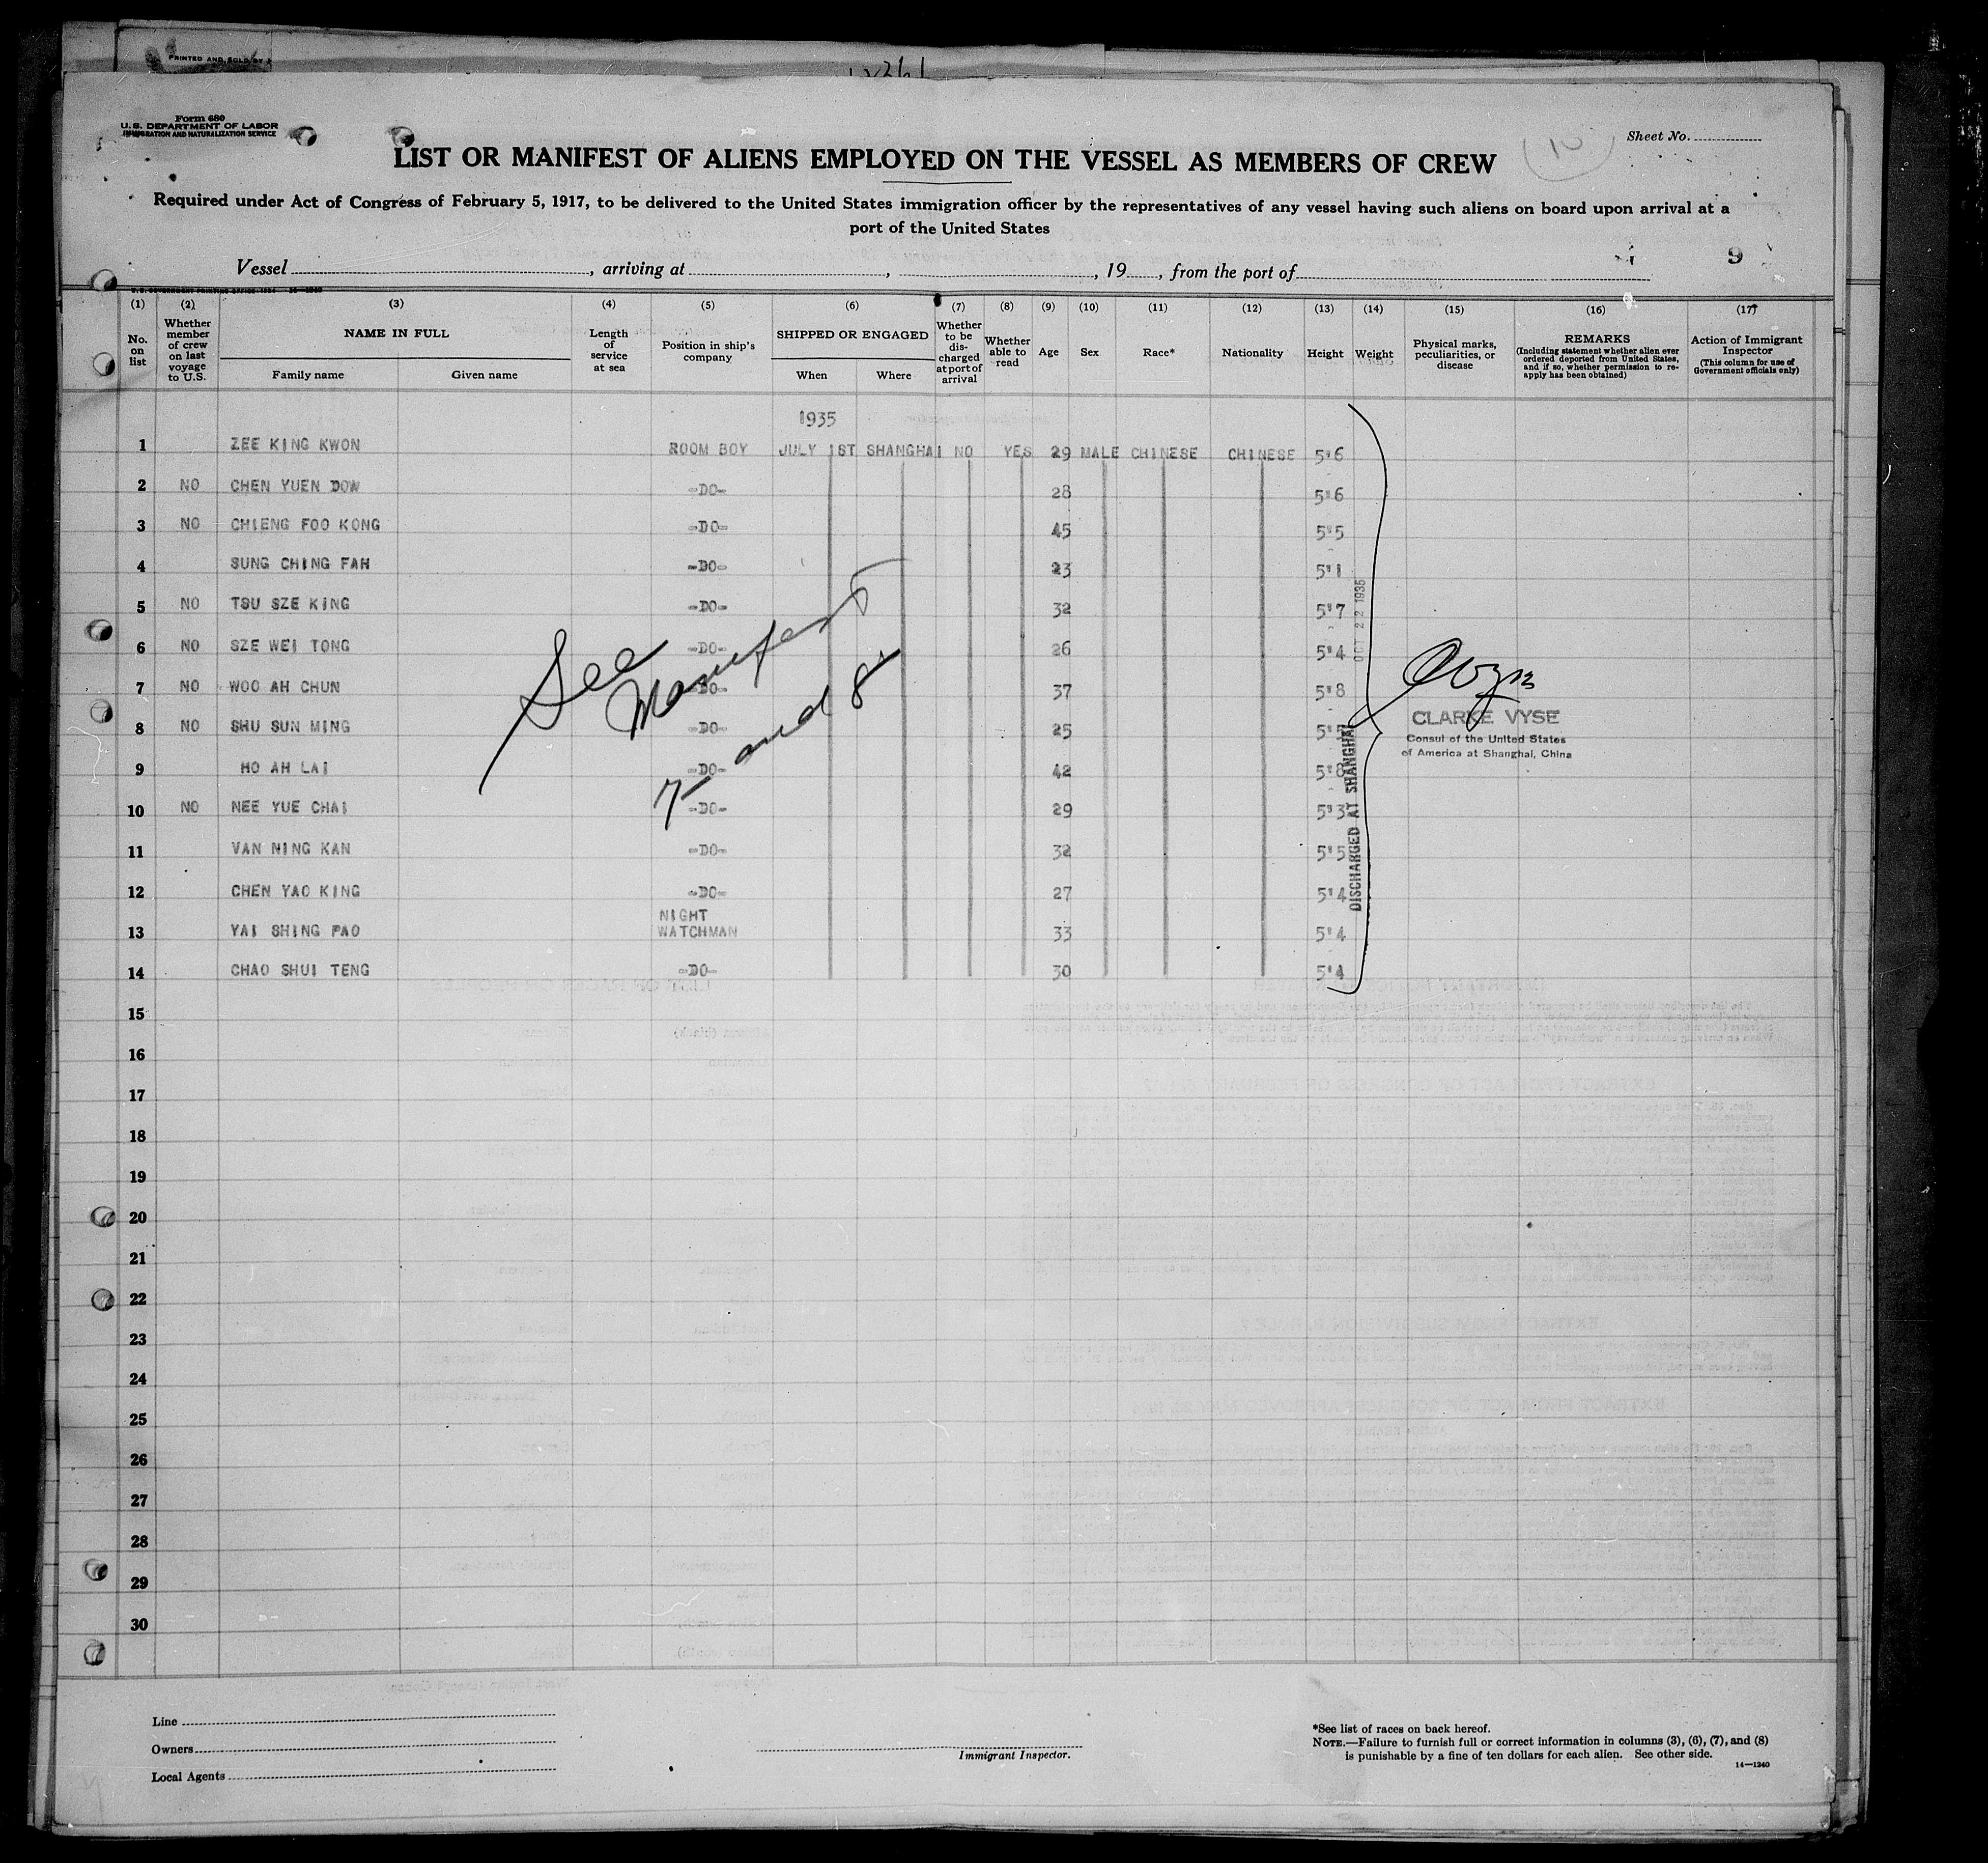 PRINTED AND SOLD BY
Form 680
U. S. DEPARTMENT OF LABOR
IMMIGRATION AND NATURALIZATION SERVICE
Sheet No.
10
LIST OR MANIFEST OF ALIENS EMPLOYED ON THE VESSEL AS MEMBERS OF CREW
Required under Act of Congress of February 5, 1917, to be delivered to the United States immigration officer by the representatives of any vessel having such aliens on board upon arrival at a
port of the United States
9
Vessel , arriving at , , 19 , from the port of
(1) (2) (3) (4) (5) (6) (7) (8) (9) (10) (11) (12) (13) (14) (15) (16) (17)
No. on list
Whether member of crew on last voyage to U.S.
NAME IN FULL
Family name Given name
Length of service at sea
Position in ship's company
SHIPPED OR ENGAGED
When Where
Whether to be discharged at port of arrival
Whether able to read
Age
Sex
Race*
Nationality
Height
Weight
Physical marks, peculiarities, or disease
REMARKS
(Including statement whether alien ever ordered deported from United States, and if so, whether permission to re-apply has been obtained)
Action of Immigrant Inspector
(This column for use of Government officials only)
1935
1 ZEE KING KWON ROOM BOY JULY 1ST SHANGHAI NO YES 29 MALE CHINESE CHINESE 5'6
2 NO CHEN YUEN DOW -DO- 28 5'6
3 NO CHIENG FOO KONG -DO- 45 5'5
4 SUNG CHING FAH -DO- 23 5'1
5 NO TSU SZE KING -DO- 32 5'7
6 NO SZE WEI TONG -DO- 26 5'4
7 NO WOO AH CHUN -DO- 37 5'8
8 NO SHU SUN MING -DO- 25 5'5
9 HO AH LAI -DO- 42 5'8
10 NO NEE YUE CHAI -DO- 29 5'3
11 VAN NING KAN -DO- 32 5'5
12 CHEN YAO KING -DO- 27 5'4
13 YAI SHING PAO NIGHT WATCHMAN 33 5'4
14 CHAO SHUI TENG -DO- 30 5'4
See
Manifest
7 and 8
DISCHARGED AT SHANGHAI OCT 22 1935
CLARKE VYSE
Consul of the United States
of America at Shanghai, China
15
16
17
18
19
20
21
22
23
24
25
26
27
28
29
30
Line
Owners
Local Agents
Immigrant Inspector.
*See list of races on back hereof.
NOTE.—Failure to furnish full or correct information in columns (3), (6), (7), and (8)
is punishable by a fine of ten dollars for each alien. See other side.
14—1240